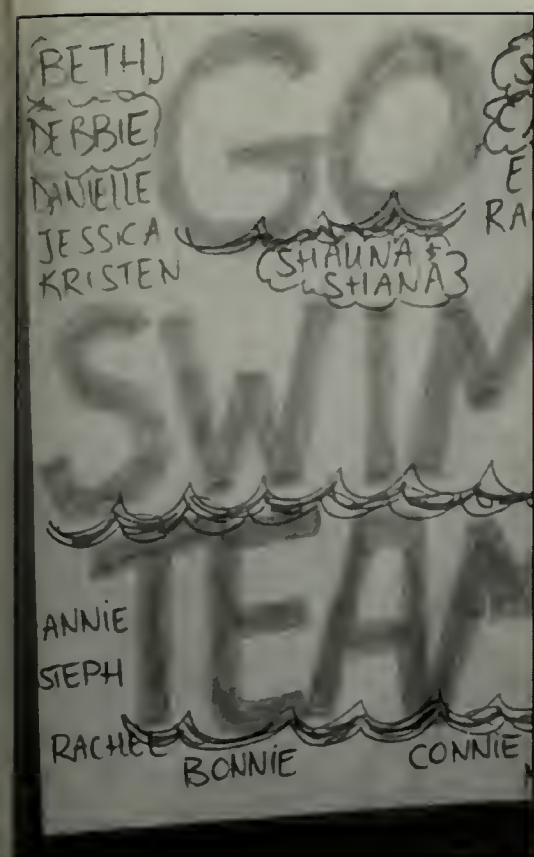 BETH
DEBBIE
DANIELLE
JESSICA
KRISTEN
GO
SHAUNA &
SHANA
SWIM
TEAM
ANNIE
STEPH
RACHEL
BONNIE
CONNIE